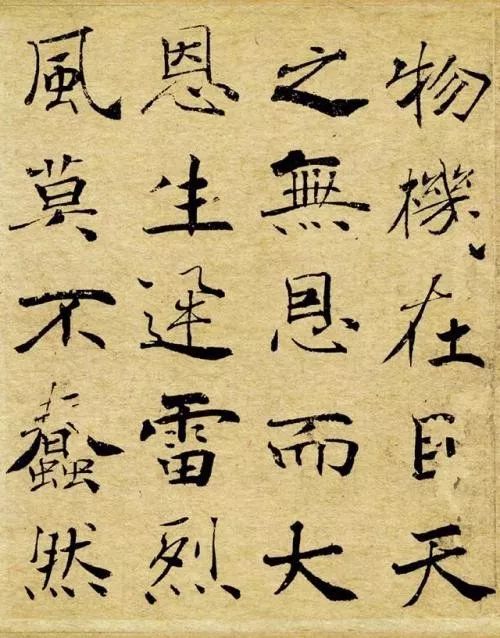 物機在目天
之無恩而大
恩生迅雷烈
風莫不蠢然